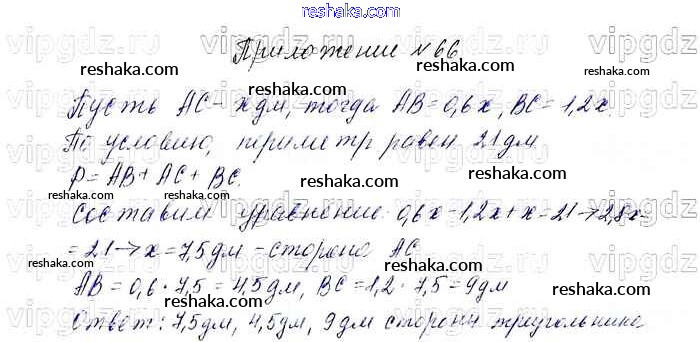 reshaka.com
Приложение №66
reshaka.com reshaka.com reshaka.com
Пусть АС - х дм, тогда АВ = 0,6х, ВС = 1,2х.
По условию, периметр равен 21 дм
Р = АВ + АС + ВС.
reshaka.com reshaka.com reshaka.com
Составим уравнение: 0,6х + 1,2х + х = 21 → 2,8х =
= 21 → х = 7,5 дм - сторона АС
reshaka.com reshaka.com reshaka.com
АВ = 0,6 · 7,5 = 4,5 дм, ВС = 1,2 · 7,5 = 9 дм
Ответ: 7,5 дм, 4,5 дм, 9 дм стороны треугольника
reshaka.com